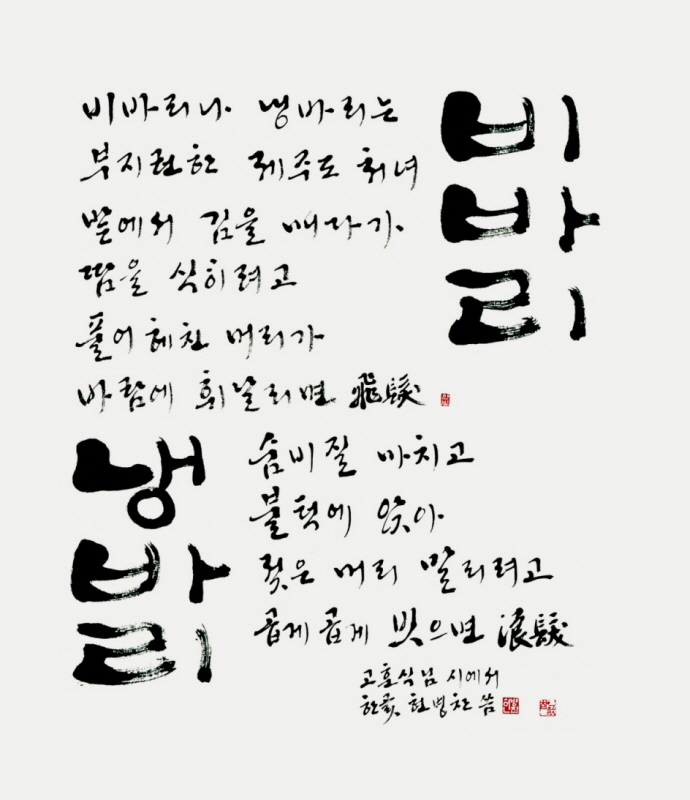 비바리
비바리나 냉바리는
부지런한 제주도 처녀
밭에서 김을 매다가
땀을 식히려고
풀어 헤친 머리가
바람에 휘날리면 飛髮
냉바리
숨비질 마치고
불턱에 앉아
젖은 머리 말리려고
곱게 곱게 빗으면 浪髮
고훈식님 시에서
한곬 현병찬 씀